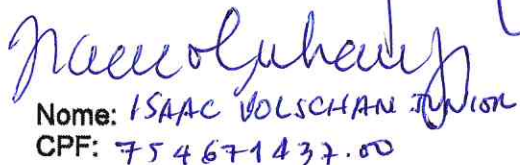 Nome: ISAAC VOLSCHAN JUNIOR
CPF: 754671437.00